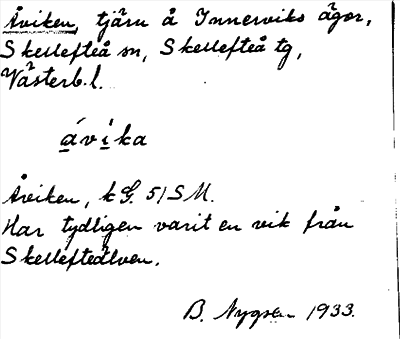 Åviken, tjärn å Innerviks ägor,
Skellefteå sn, Skellefteå tg,
Västerb. l.
ávíka
Åviken, k G. 51 S M.
Har tydligen varit en vik från
Skellefteälven.
B. Nygren 1933.